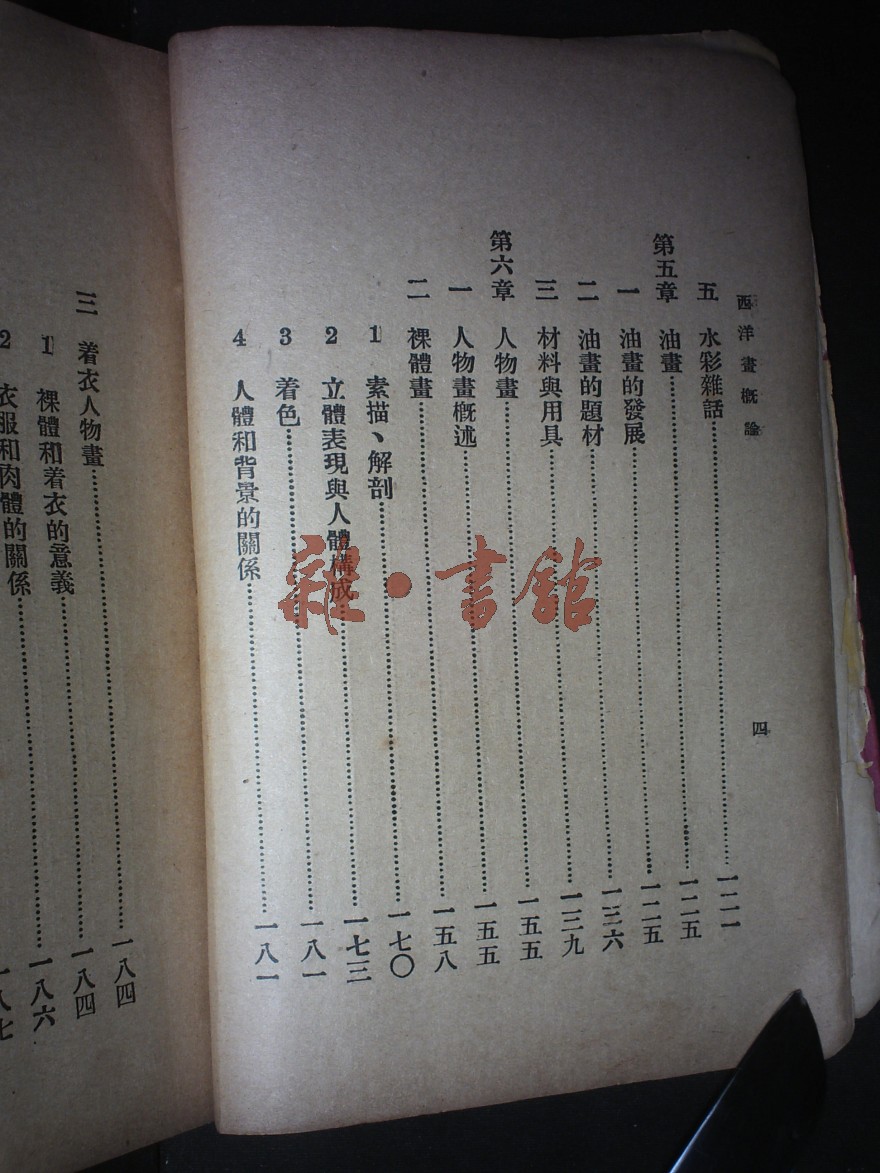 西洋畫概論 四
五 水彩雜話……一二一
第五章 油畫……一二五
一 油畫的發展……一二五
二 油畫的題材……一三六
三 材料與用具……一三九
第六章 人物畫……一五五
一 人物畫概述……一五五
二 裸體畫……一五八
1 素描、解剖……一七〇
2 立體表現與人體構成……一七三
3 着色……一八一
4 人體和背景的關係……一八一
三 着衣人物畫……一八四
1 裸體和着衣的意義……一八四
2 衣服和肉體的關係……一八六
一八七
雜·書館